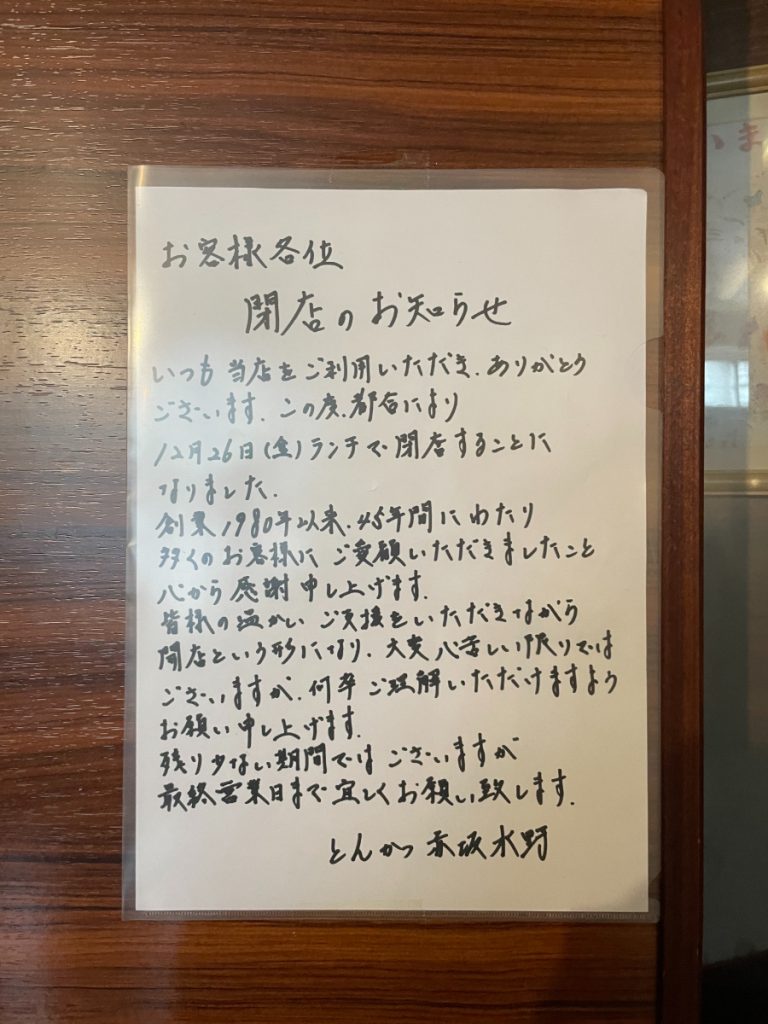 お客様各位
閉店のお知らせ
いつも当店をご利用いただき、ありがとう
ございます。この度、都合により
12月26日(金)ランチで閉店することに
なりました。
創業1980年以来、45年間にわたり
多くのお客様にご愛顧いただきましたこと
心から感謝申し上げます。
皆様の温かいご支援をいただきながら
閉店という形になり、大変心苦しい限りでは
ございますが、何卒ご理解いただけますよう
お願い申し上げます。
残り少ない期間ではございますが
最終営業日まで宜しくお願い致します。
とんかつ 赤坂水野